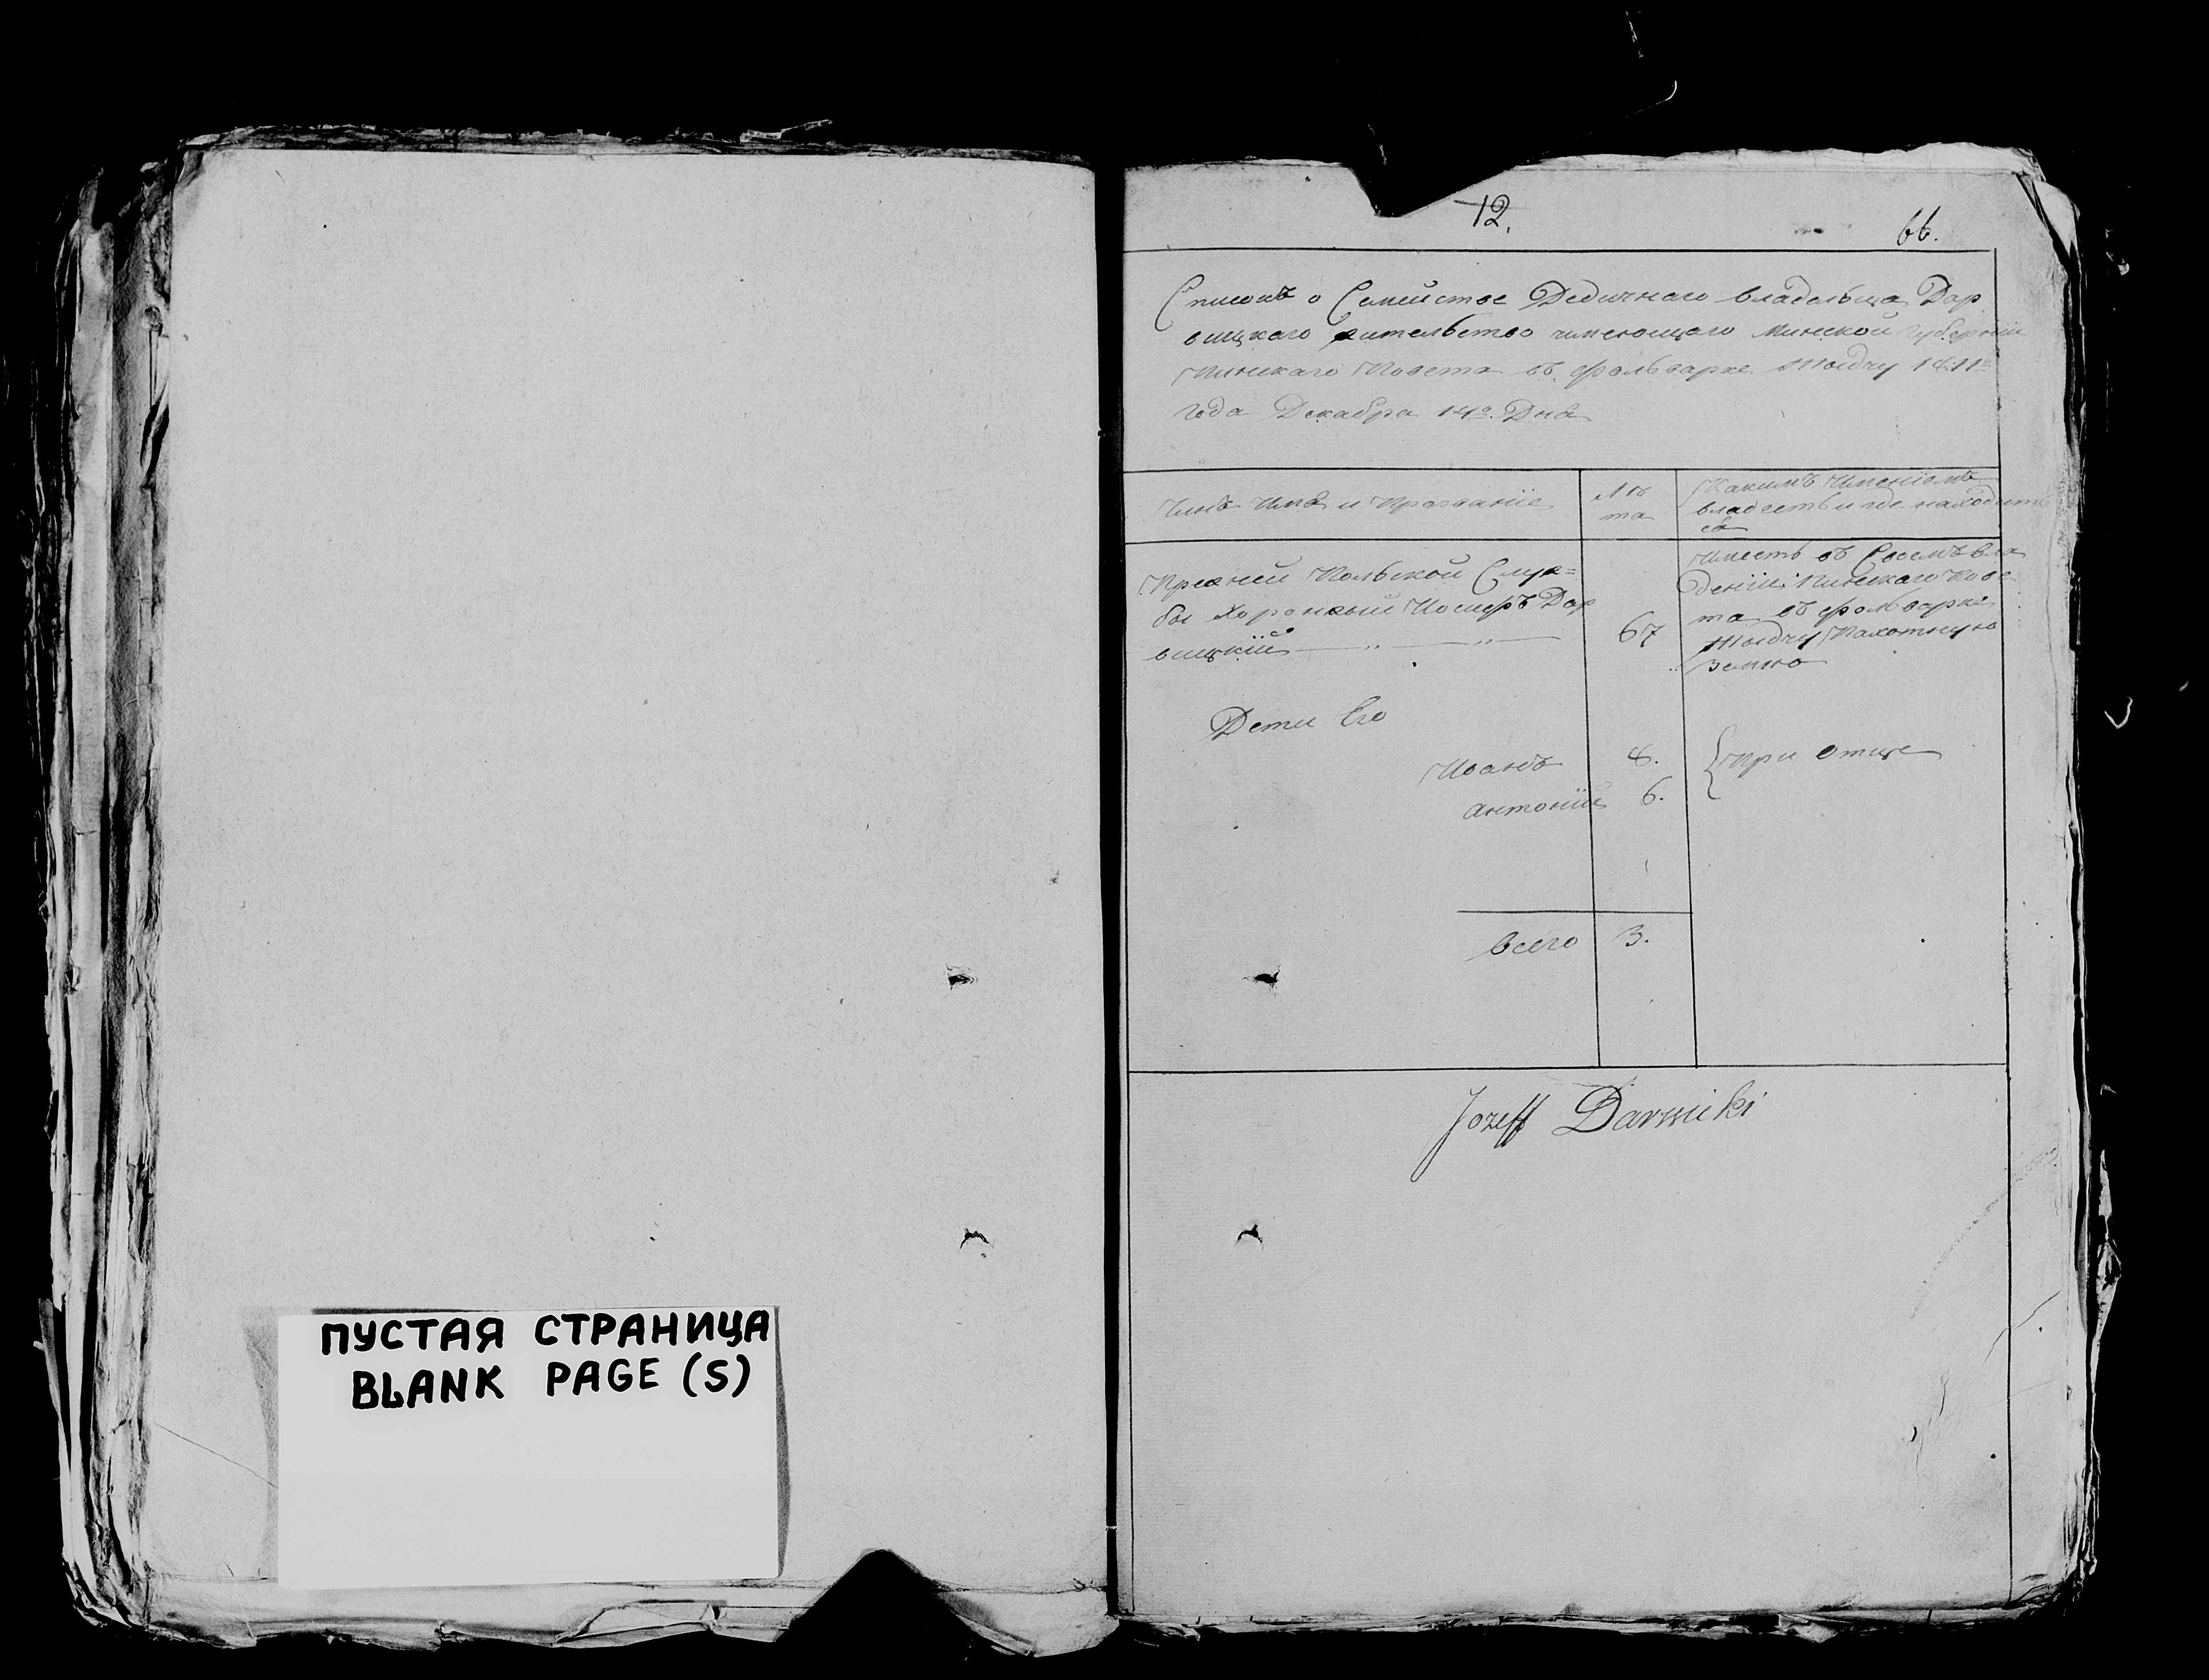 ПУСТАЯ СТРАНИЦА
BLANK PAGE (S)
12.
66.
Списокъ о Семействе Дедичнаго владельца Дар
вицкаго жительство имеющаго Минской Губернии
Пинскаго Повета въ фольварке 1811го
года Декабра 14го Дна
Чинъ Има и Прозваніе
Лѣ
та
Какимъ Именіемъ
владеетъ и где находить
са
Прежней Польской Служ=
бы Хоронжый Иосифъ Дар
вицкій
67
Имеетъ въ Своемъ вла
деніи Пинскаго Пове
та въ фольварке
Пахотную
Землю
Дети Его
Иванъ 8.
Антоній 6.
При Отце
Всего 3.
Jozeff Darwicki